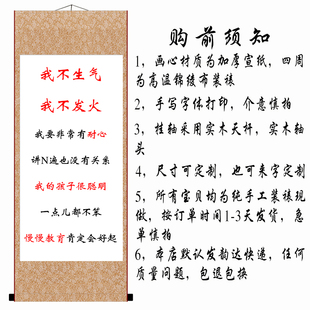 我不生气
我不发火
我要非常有耐心
讲N遍也没有关系
我的孩子很聪明
一点儿都不笨
慢慢教育肯定会好起
购前须知
1，画心材质为加厚宣纸，四周
为高温锦绫布装裱
2，手写字体打印，介意慎拍
3，挂轴采用实木天杆，实木轴
头
4，尺寸可定制，也可来字定制
5，所有宝贝均为纯手工装裱现
做，按订单时间1-3天发货，急
单慎拍
6，本店默认发韵达快递，任何
质量问题，包退包换